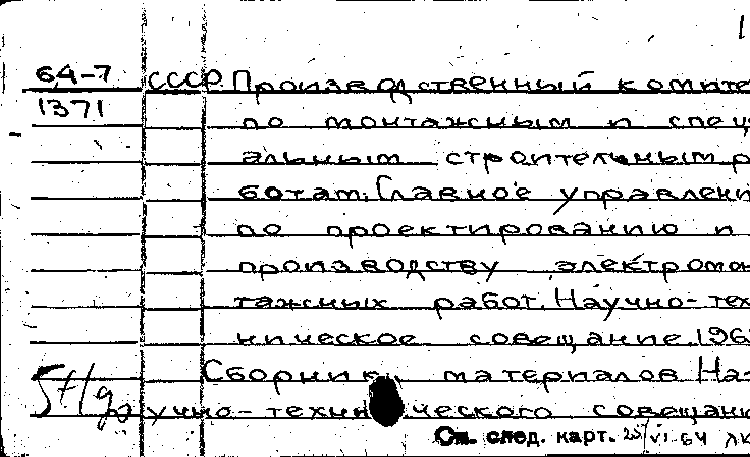 1
64-7 СССР. Производственный комите
1371 по монтажным и спец
альным строительным р
ботам. Главное управлени
по проектированию и
производству электромон
тажных работ. Научно-тех
ническое совещание. 196
Сборник материалов На-
учно-технического совещани
См. след. карт. VI-64